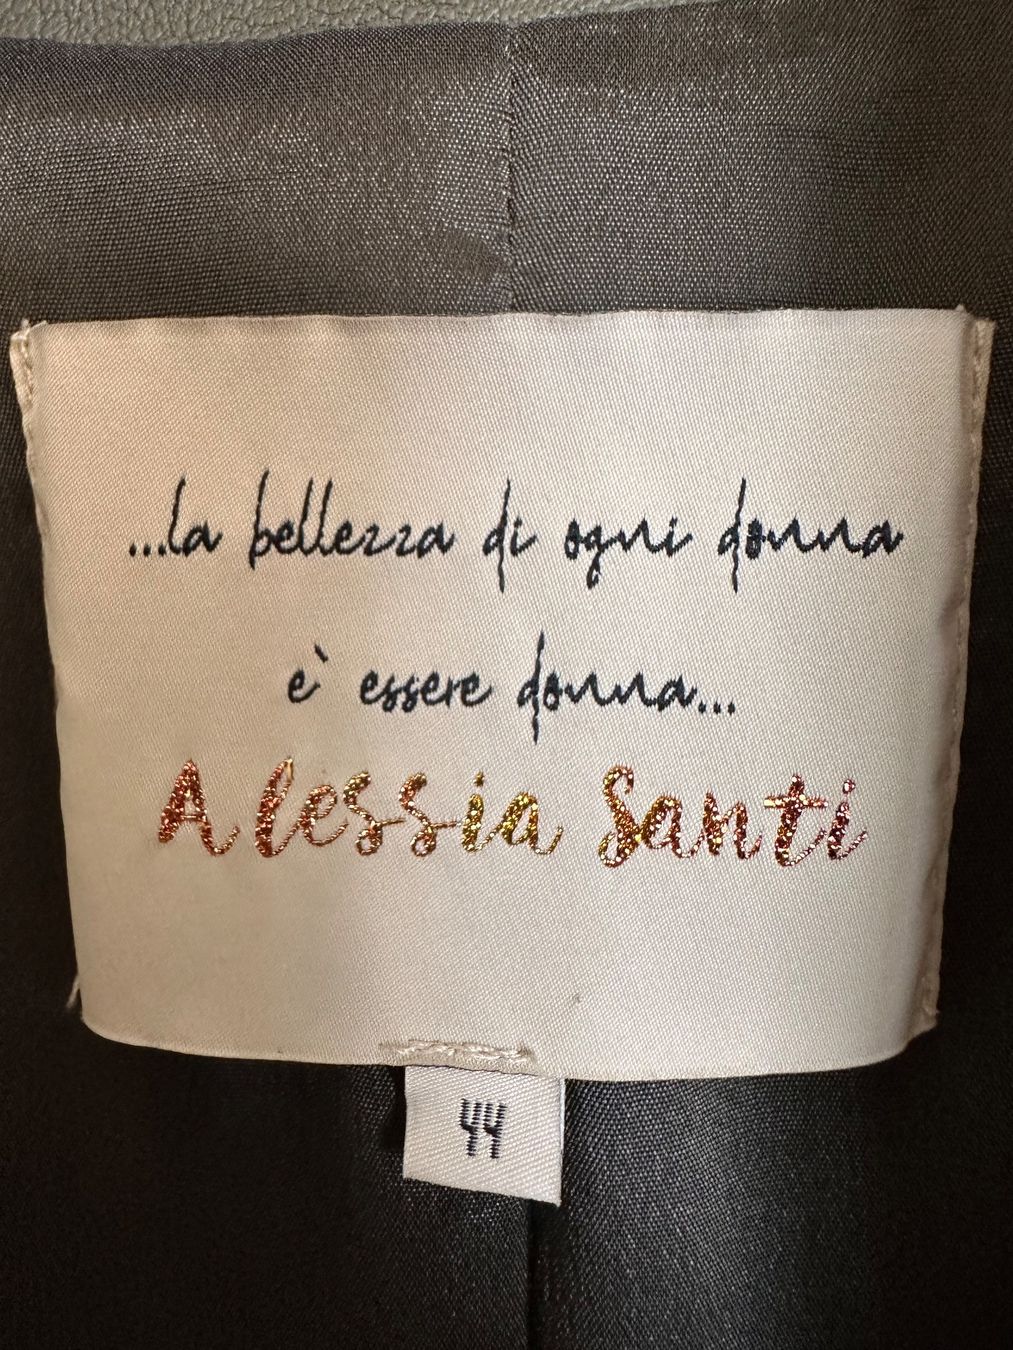 ...la bellezza di ogni donna
e` essere donna...
Alessia Santi
44